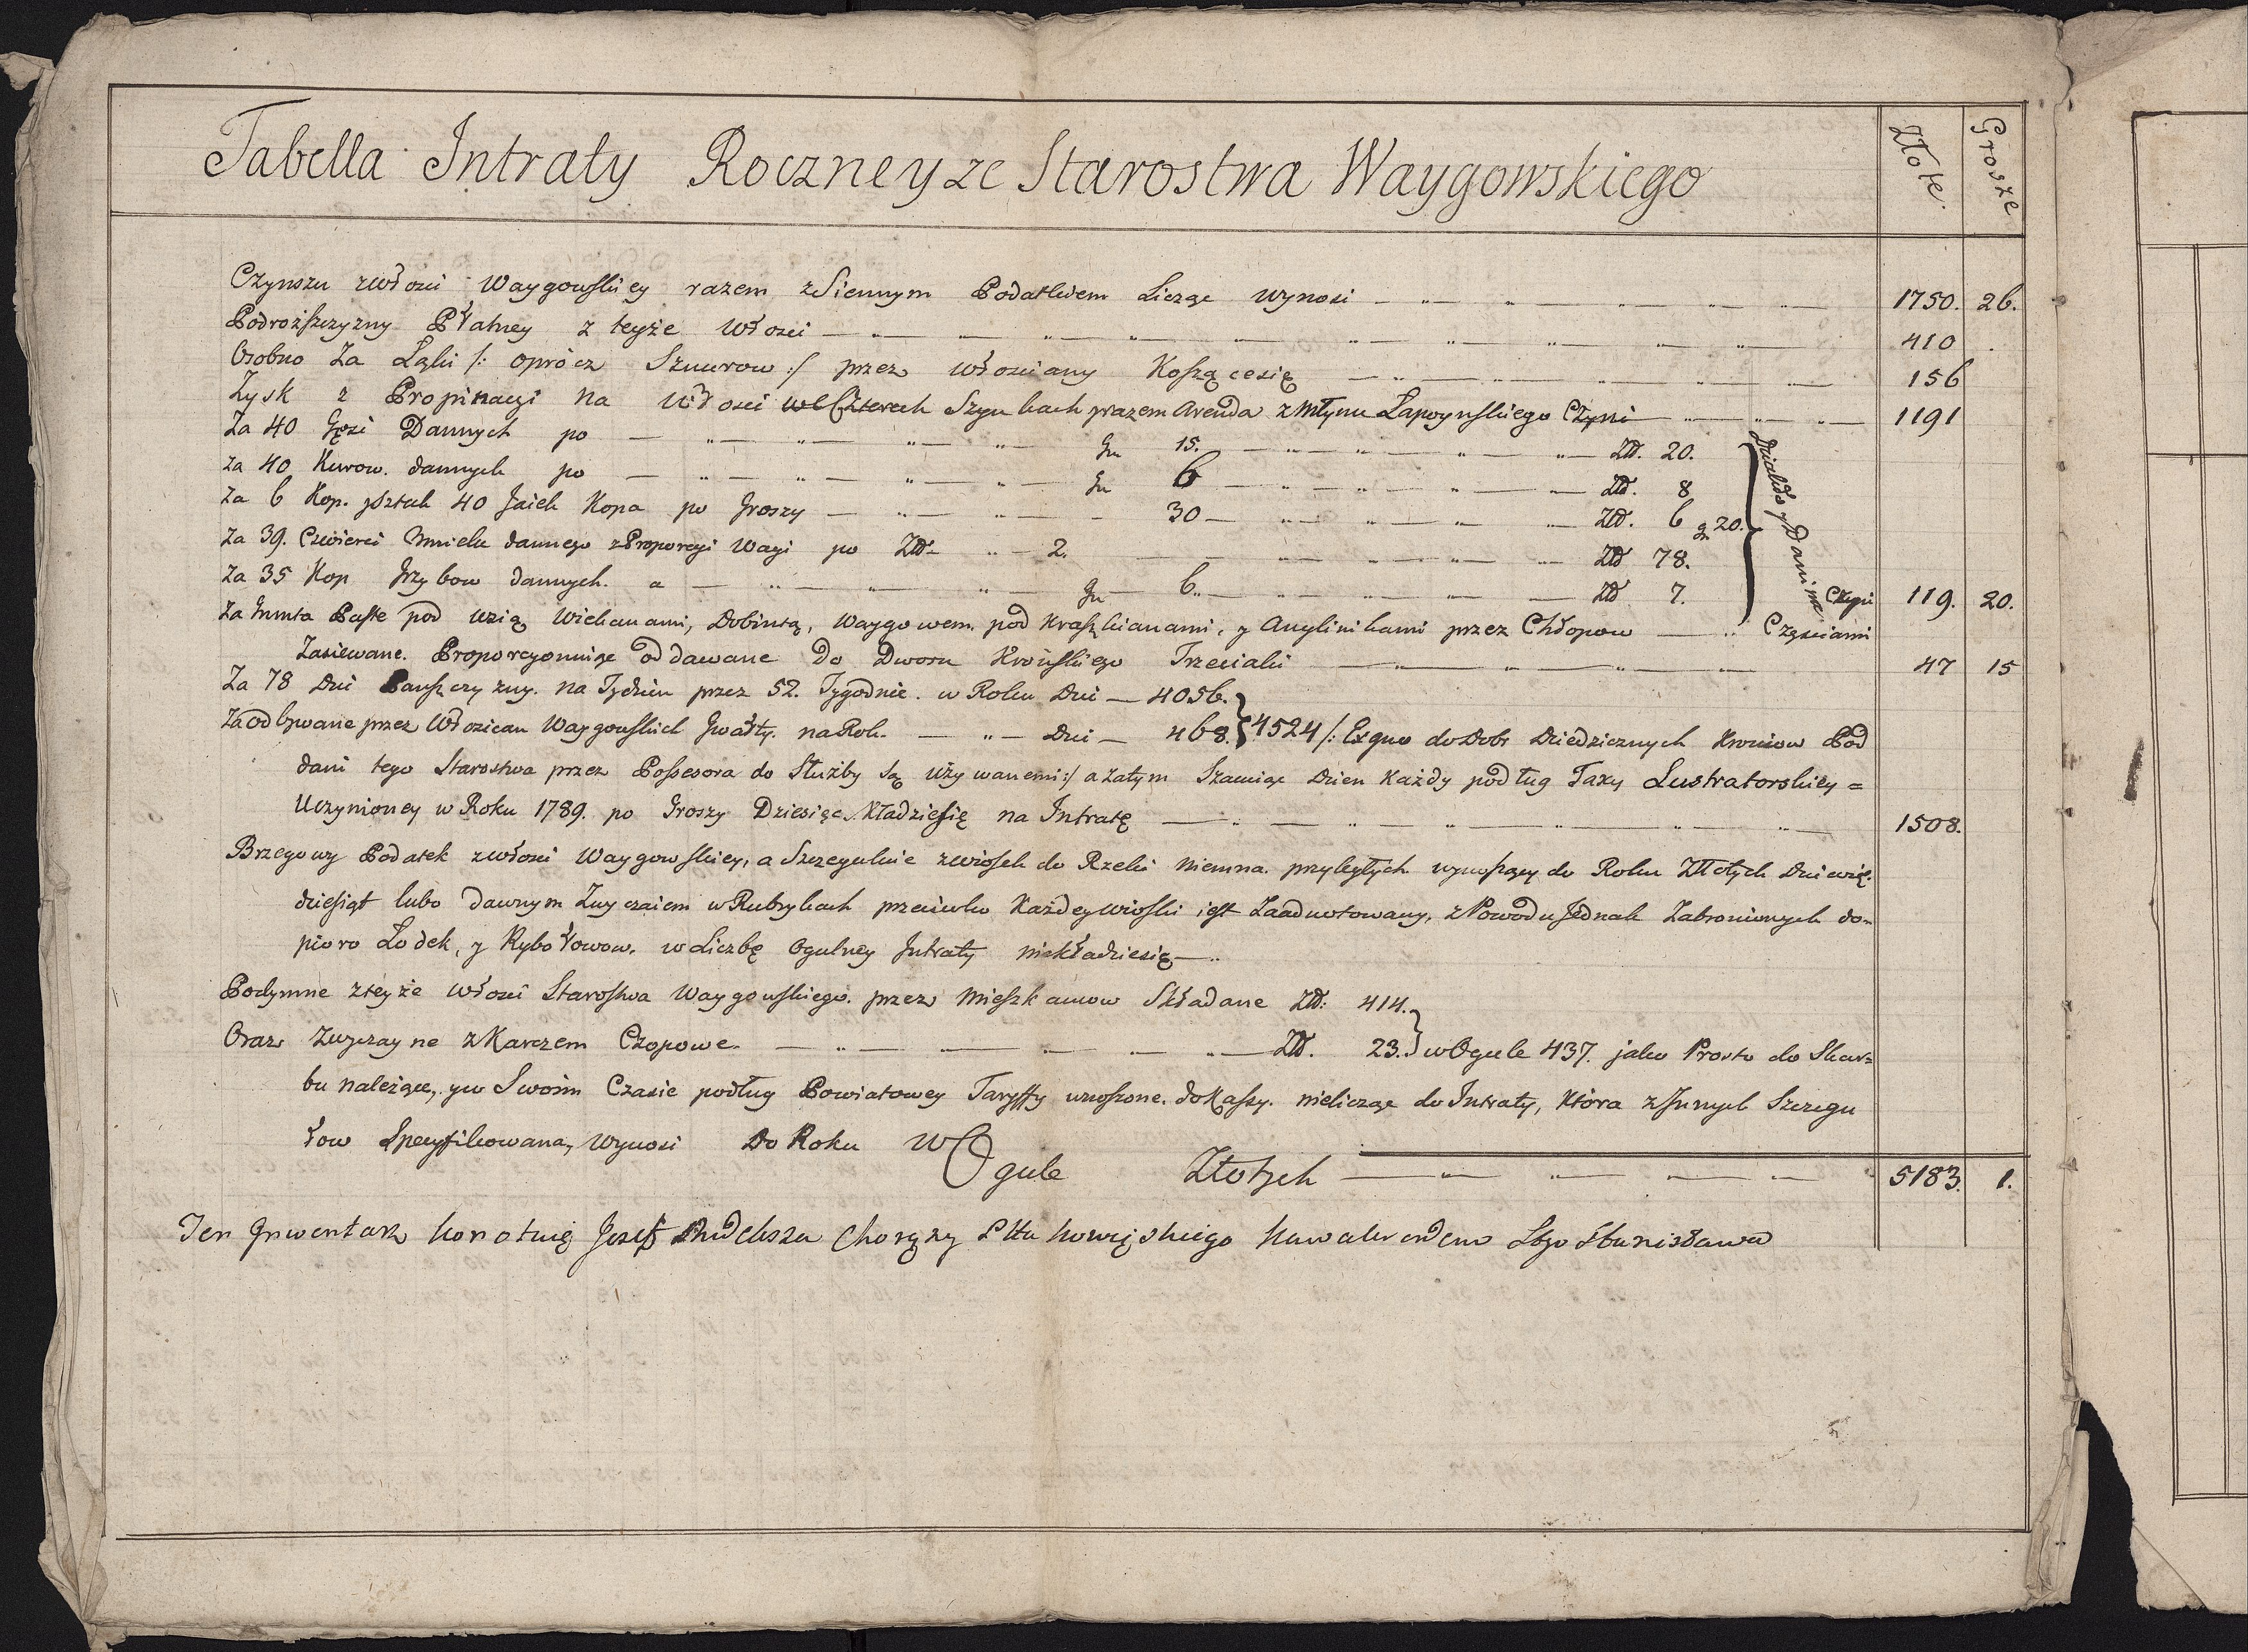 Tabella Intraty Roczney ze Starostwa Waygowskiego
Złote. Grosze
Czynszu z Włości Waygowskiey razem z Siennym Podatkiem Licząc wynosi 1750. 26.
Podroższczyzny Płatney z teyże Włości 410
Osobno za Łąki /: oprócz Sznurow :/ przez włościany Koszącesię 156
Zysk z Propinacyi na Włości we Czterech Szynkach y razem Arenda z Młynu Łapoynskiego Czyni 1191
Za 40 Gęsi Dannych po Gr 15. Złł. 20.
za 40 Kurow. dannych po Gr 6 Złł. 8
za 6 Kop. y sztuk 40 Jaiek Kopa po Groszy 30 Złł. 6 gr 20.
Za 39. Czwierci Chmielu dannego z Proporcyi Wagi po Złł 2. Złł 78.
Za 35 Kop Grzybow dannych. a Gr 6. Złł 7.
Dziakło y Daninne Czyni 119. 20.
Za Grunta Puste pod Uzią, Wiekanami, Dobintą, Waygowem. pod Kraszkianami, y Anglinikami przez Chłopow Częściami
Zasiewane. Proporcyonnige oddawane do Dworu Krońskiego Trzeciaki 47 15
Za 78 Dni Pańszczyzny. na Tydzień przez 52. Tygodnie. w Roku Dni 4056.
Za odbywane przez Włościan Waygowskich Gwałty. na Rok. Dni 468. 4524 /: Ex quo do Dobr Dziedzicznych Kroniow Pod
dani tego Starostwa przez Possesora do Służby są używanemi :/ a zatym Szacuiąc Dzien każdy podług Taxy Lustratorskiey =
Uczynioney w Roku 1789. po Groszy Dziesięć. Kładziesię na Intratę 1508.
Brzegowy Podatek z włości Waygowskiey, a Szczegulnie z wiosek do Rzeki Niemna. przyległych wynoszący do Roku Złłotych Dziewię-
dziesiąt lubo dawnym Zwyczaiem w Rubrykach przeciwko każdey wioski iest Zaadnotowany, z Powodu Jednak Zabronionych do-
pioro Łodek, y Rybołowow. w Liczbę Ogulney Intraty niekładziesię
Podymne z teyże włości Starostwa Waygowskiego. przez Mieszkancow Składane Złł. 414.
Oraz Zwyczayne z Karczem Czopowe. Złł. 23. w Ogule 437. jako Prosto do Skar=
bu należące, y w Swoim Czasie podług Powiatowey Taryffy wnoszone. do Kassy. nielicząc do Intraty, Która z Innych Szczegu
łow Specyfikowana, wynosi Do Roku W Ogule Złotych 5183. 1.
Ten Inwentarz konotuię Jozef Chorąży Pttu Kowieńskiego Kawaler orderu Stgo Stanisława